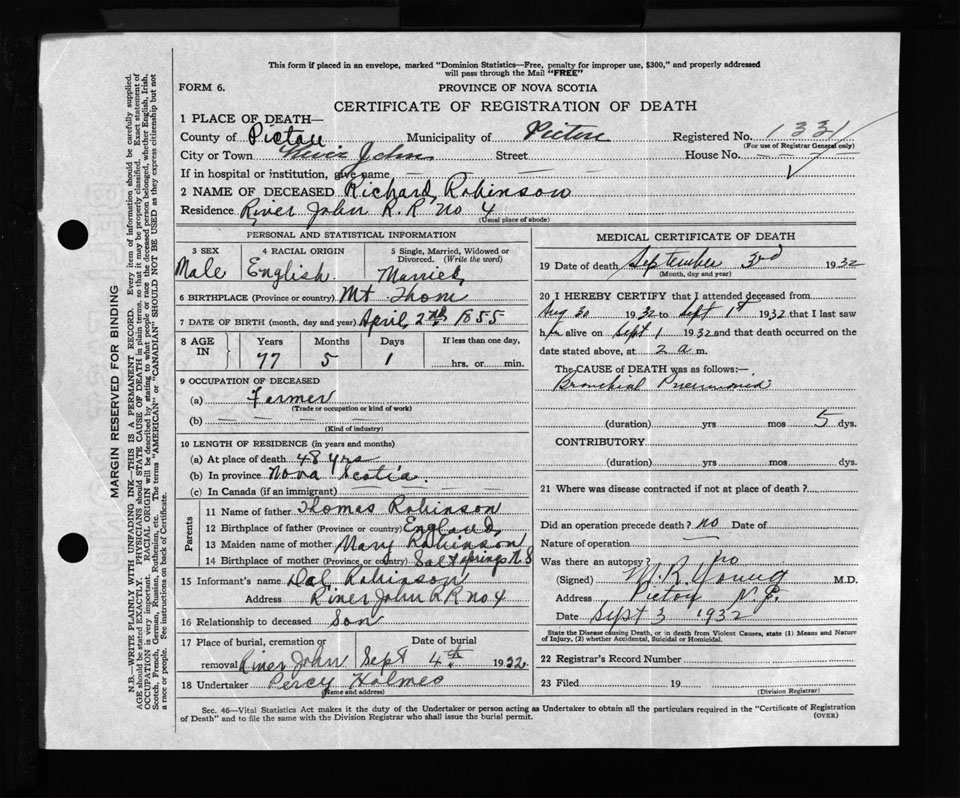 This form if placed in an envelope, marked "Dominion Statistics—Free, penalty for improper use, $300," and properly addressed
will pass through the Mail "FREE"
FORM 6. PROVINCE OF NOVA SCOTIA
CERTIFICATE OF REGISTRATION OF DEATH
1 PLACE OF DEATH—
County of Pictou Municipality of Pictou Registered No. 1331
(For use of Registrar General only)
City or Town River John Street House No.
If in hospital or institution, give name
2 NAME OF DECEASED Richard Robinson
Residence River John R.R No 4
(Usual place of abode)
PERSONAL AND STATISTICAL INFORMATION
3 SEX 4 RACIAL ORIGIN 5 Single, Married, Widowed or
Divorced. (Write the word)
Male English Married
6 BIRTHPLACE (Province or country) Mt Thom
7 DATE OF BIRTH (month, day and year) April 2nd 1855
8 AGE IN Years Months Days If less than one day,
77 5 1 hrs. or min.
9 OCCUPATION OF DECEASED
(a) Farmer
(Trade or occupation or kind of work)
(b)
(Kind of industry)
10 LENGTH OF RESIDENCE (in years and months)
(a) At place of death 48 yrs
(b) In province Nova Scotia
(c) In Canada (if an immigrant)
Parents
11 Name of father Thomas Robinson
12 Birthplace of father (Province or country) England
13 Maiden name of mother Mary Robinson
14 Birthplace of mother (Province or country) Salt springs N.S
15 Informant's name Dal Robinson
Address River John RR no 4
16 Relationship to deceased Son
17 Place of burial, cremation or Date of burial
removal River John Sept 4th 1932
18 Undertaker Percy Holmes
(Name and address)
MEDICAL CERTIFICATE OF DEATH
19 Date of death September 3rd 1932
(Month, day and year)
20 I HEREBY CERTIFY that I attended deceased from
Aug 30 1932 to Sept 1st 1932 that I last saw
him alive on Sept 1 1932 and that death occurred on
date stated above, at 2 a m.
The CAUSE OF DEATH was as follows:—
Bronchial Pneumonia
(duration) yrs mos 5 dys.
CONTRIBUTORY
(duration) yrs mos dys.
21 Where was disease contracted if not at place of death?
Did an operation precede death? no Date of
Nature of operation
Was there an autopsy? no
(Signed) M.R. Young M.D.
Address Pictou N.S.
Date Sept 3 1932
State the Disease causing Death, or in death from Violent Causes, state (1) Means and Nature
of Injury, (2) whether Accidental, Suicidal or Homicidal.
22 Registrar's Record Number
23 Filed 19
(Division Registrar)
Sec. 46—Vital Statistics Act makes it the duty of the Undertaker or person acting as Undertaker to obtain all the particulars required in the "Certificate of Registration
of Death" and to file the same with the Division Registrar who shall issue the burial permit. (OVER)
MARGIN RESERVED FOR BINDING
N.B.—WRITE PLAINLY WITH UNFADING INK—THIS IS A PERMANENT RECORD. Every item of information should be carefully supplied.
AGE should be stated EXACTLY. PHYSICIANS should STATE CAUSE OF DEATH in plain terms, so that it may be properly classified. Exact statement of
OCCUPATION is very important. RACIAL ORIGIN will be described by stating to what people or race the deceased person belonged, whether English, Irish,
Scotch, French, German, Russian, Ruthenian, etc. The terms "AMERICAN" or "CANADIAN" SHOULD NOT BE USED as they express citizenship but not
a race or people. See instructions on back of Certificate.